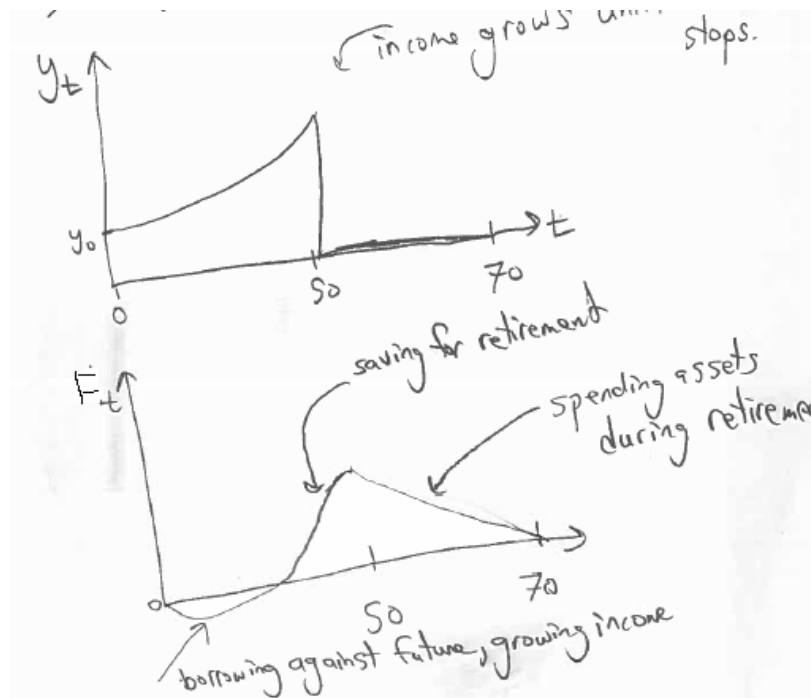 income grows
stops.
y_t
y_0
0
50
70
t
saving for retirement
F_t
spending assets
during
0
50
70
borrowing against future, growing income